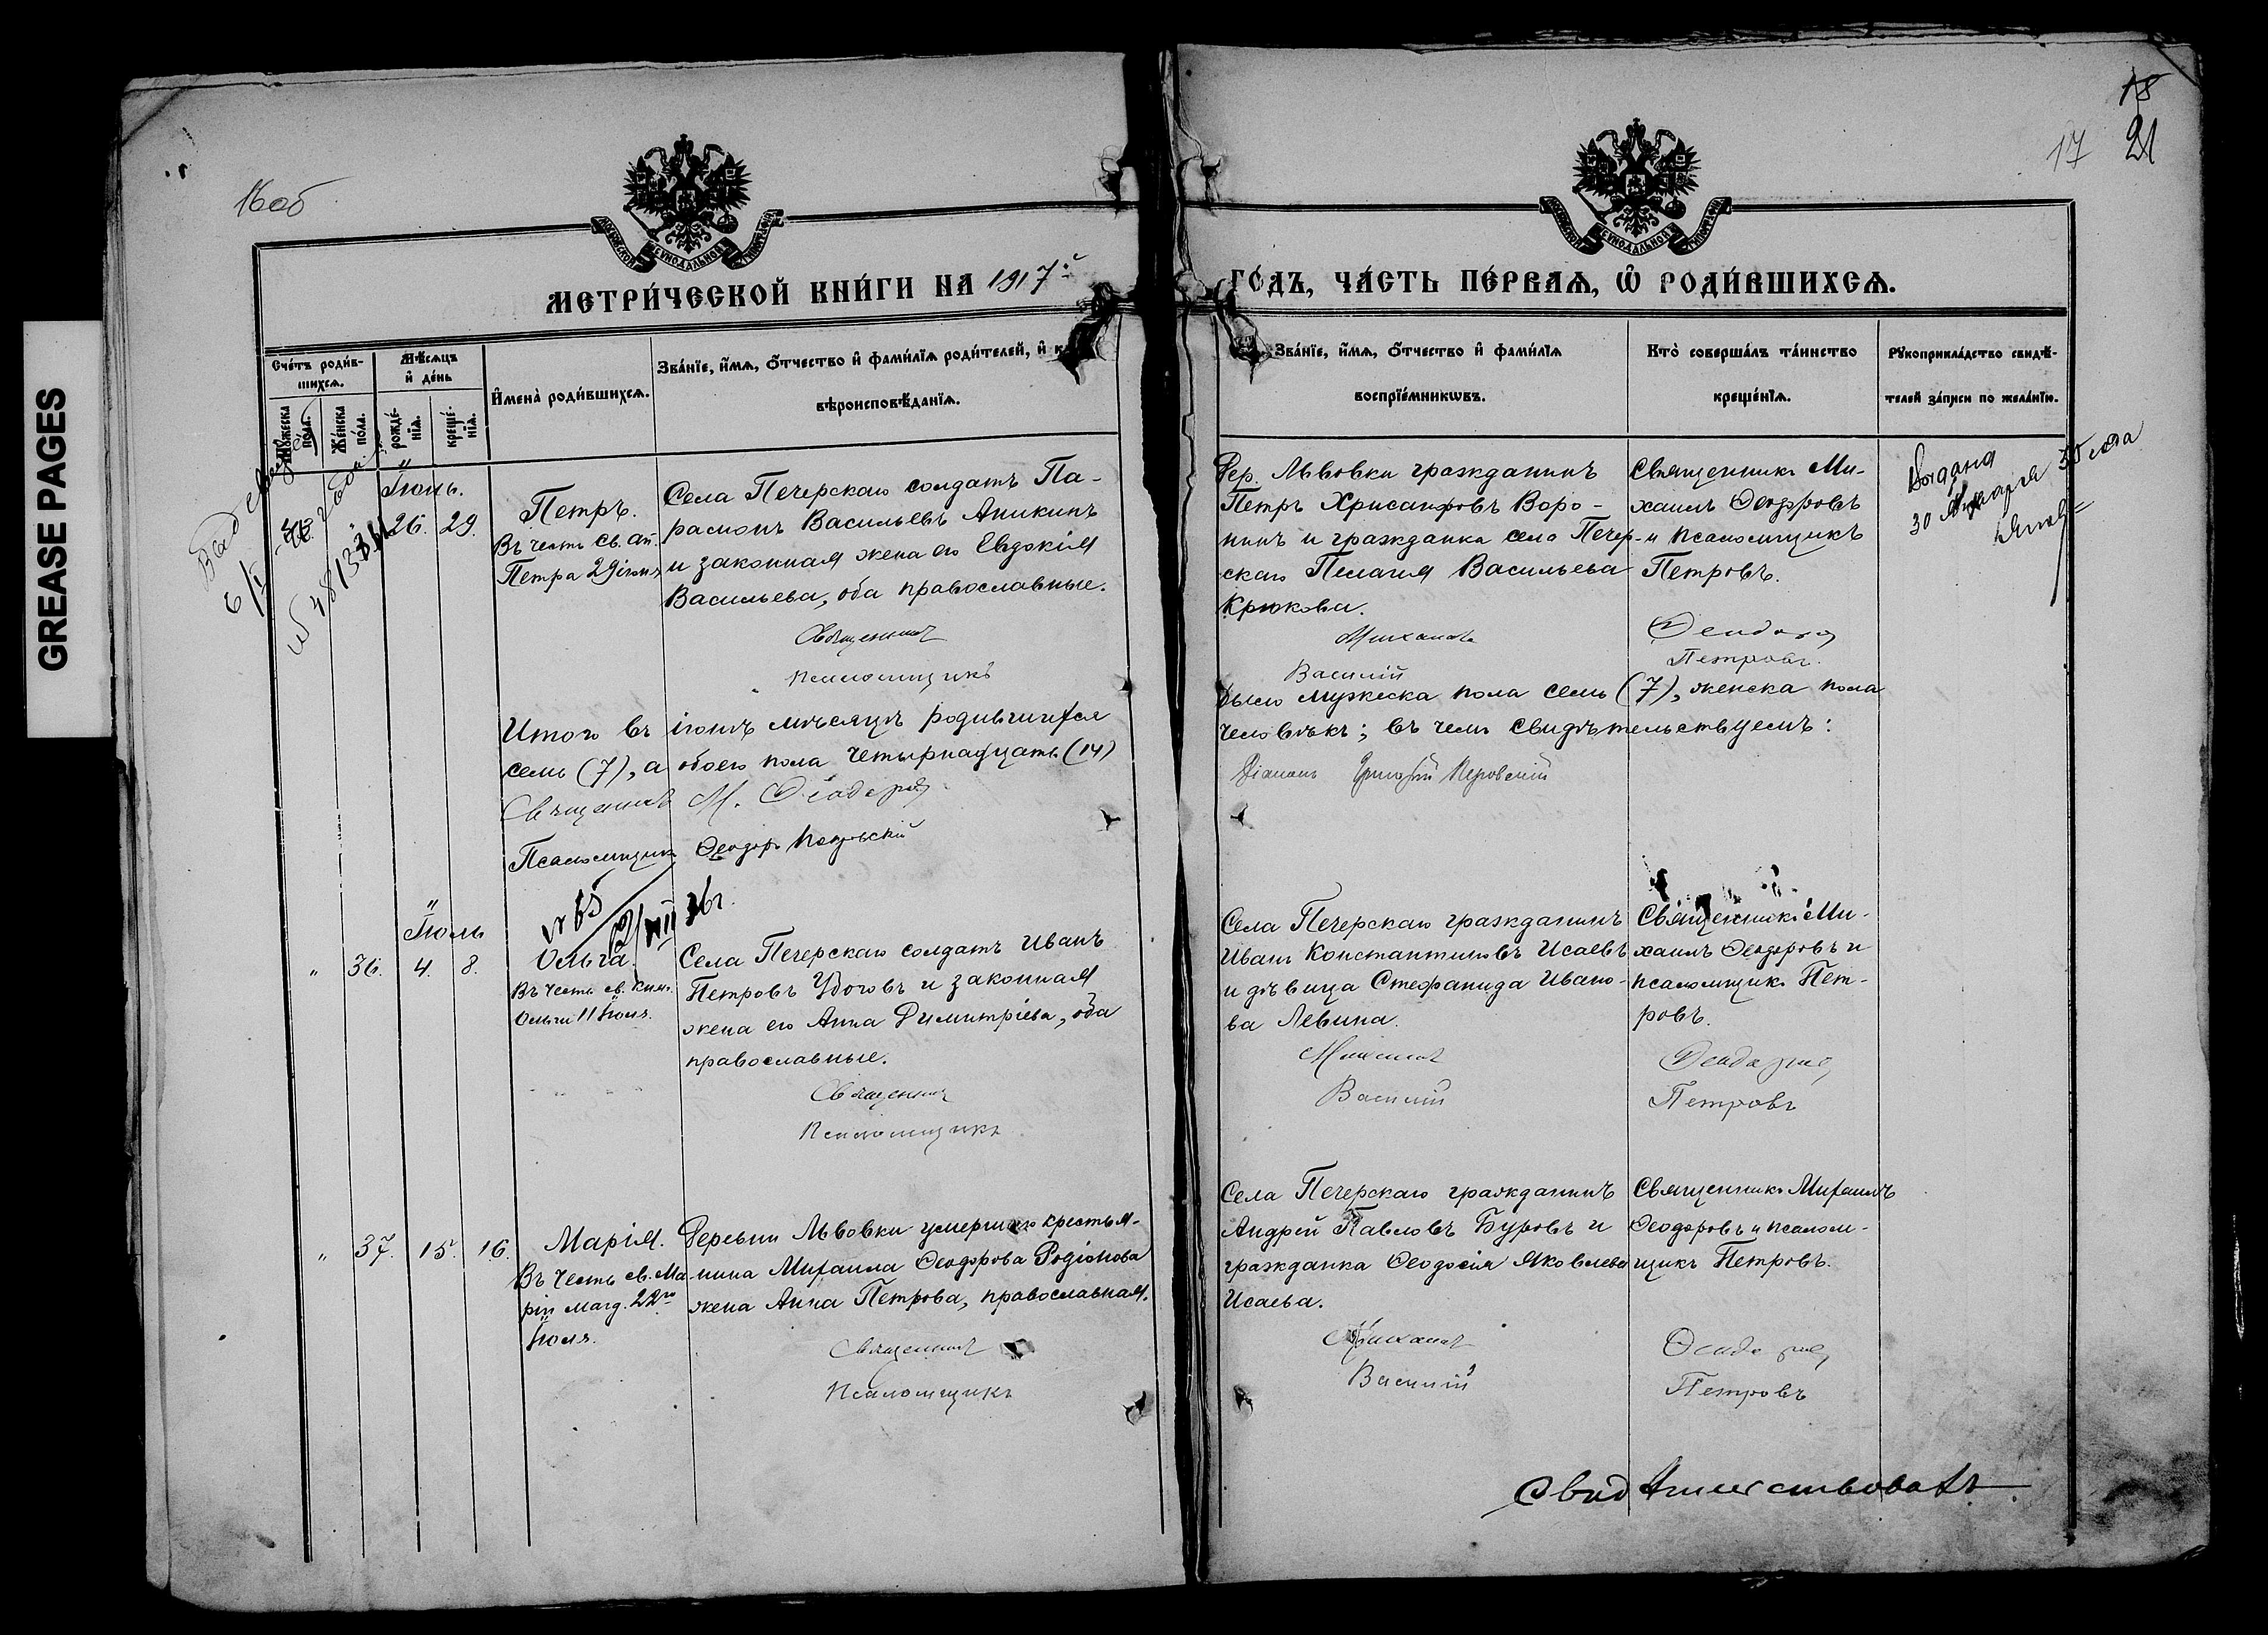 GREASE PAGES
16об
18
17 21
МОСКОВСКОЙ СѴНОДАЛЬНОЙ ТИПОГРАФІИ
МОСКОВСКОЙ СѴНОДАЛЬНОЙ ТИПОГРАФІИ
МЕТРИ́ЧЕСКОЙ КНИ́ГИ НА 1917й
ГО́ДЪ, ЧА́СТЬ ПЕ́РВАѦ, Ѡ҆ РОДИ́ВШИХСѦ.
Сче́тъ роди́в-
шихсѧ.
Мѣ́сѧцъ
и҆ де́нь
Мꙋ́жеска
по́ла.
Же́нска
по́ла.
рожде́-
нїѧ.
креще́-
нїѧ.
И҆мена̀ роди́вшихсѧ.
Зва́нїе, и҆́мѧ, ѻ҆́тчество и҆ фами́лїѧ роди́телей, и҆ к
вѣроисповѣ́данїѧ.
Зва́нїе, и҆́мѧ, ѻ҆́тчество и҆ фами́лїѧ
воспрїе́мникѡвъ.
Кто̀ соверша́лъ та́инство
креще́нїѧ.
Рꙋкоприкла́дство свидѣ́-
телей за́писи по жела́нїю.
Іюнь.
26. 29.
Петръ.
Въ честь св. ап.
Петра 29 іюня
Села Печерскаго солдатъ Па-
рамонъ Васильевъ Аникинъ
и законная жена его Евдокія
Васильева, оба православные.
Священникъ
Псаломщикъ
Дер. Львовки гражданинъ
Петръ Хрисанфовъ Воро-
нинъ и гражданка села Печер-
скаго Пелагія Васильева
Крюкова.
Михаилъ
Василій
Священникъ Ми-
хаилъ Ѳеодоровъ
и псаломщикъ
Петровъ.
Ѳеодоровъ
Петровъ.
Выдана
30 Января 35 года
Итого въ іюнѣ мѣсяцѣ родившихся
было мужеска пола семь (7), женска пола
семь (7), а обоего пола четырнадцать (14)
человѣкъ; въ чемъ свидѣтельствуемъ:
Священникъ М. Ѳеодоровъ
Діаконъ Григорій
Псаломщикъ Ѳеодоръ
№ 65
Іюль
" 36. 4. 8.
Ольга.
Въ честь св. княг.
Ольги 11 іюля.
Села Печерскаго солдатъ Иванъ
Петровъ Удоговъ и законная
жена его Анна Димитріева, оба
православные.
Священникъ
Псаломщикъ
Села Печерскаго гражданинъ
Иванъ Константиновъ Исаевъ
и дѣвица Стефанида Ивано-
ва Левина.
Михаилъ
Василій
Священникъ Ми-
хаилъ Ѳеодоровъ и
псаломщикъ Пет-
ровъ.
Ѳеодоровъ
Петровъ
" 37. 15. 16.
Марія.
Въ честь св. Ма-
ріи Магд. 22го
іюля.
Деревни Львовки умершаго крестья-
нина Михаила Ѳеодорова Родіонова
жена Анна Петрова, православная.
Священникъ
Псаломщикъ
Села Печерскаго гражданинъ
Андрей Павловъ Буровъ и
гражданка Ѳеодосія Яковлева
Исаева.
Михаилъ
Василій
Священникъ Михаилъ
Ѳеодоровъ и псалом-
щикъ Петровъ.
Ѳеодоровъ
Петровъ
Свидѣтельствовалъ